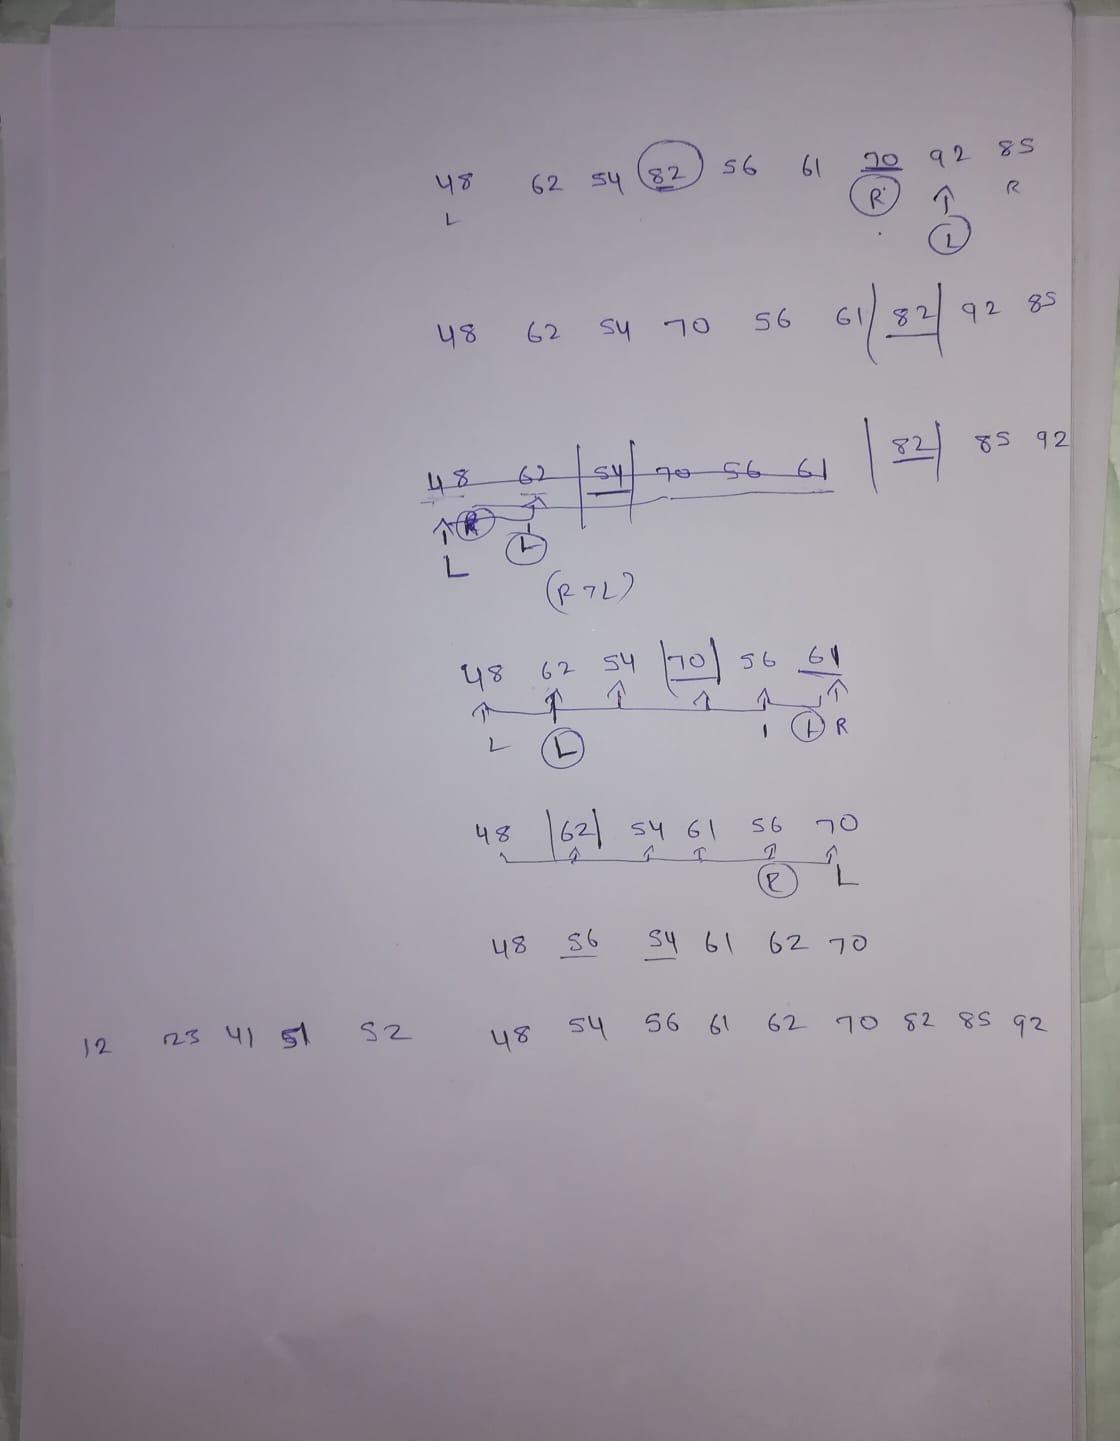 48 62 54 82 56 61 70 92 85
L R R
L
48 62 54 70 56 61 | 82 | 92 85
48 62 | 54 | 70 56 61 | 82 | 85 92
L L
(R > L)
48 62 54 | 70 | 56 61
L L L R
48 | 62 | 54 61 56 70
R L
48 56 54 61 62 70
12 23 41 51 52 48 54 56 61 62 70 82 85 92